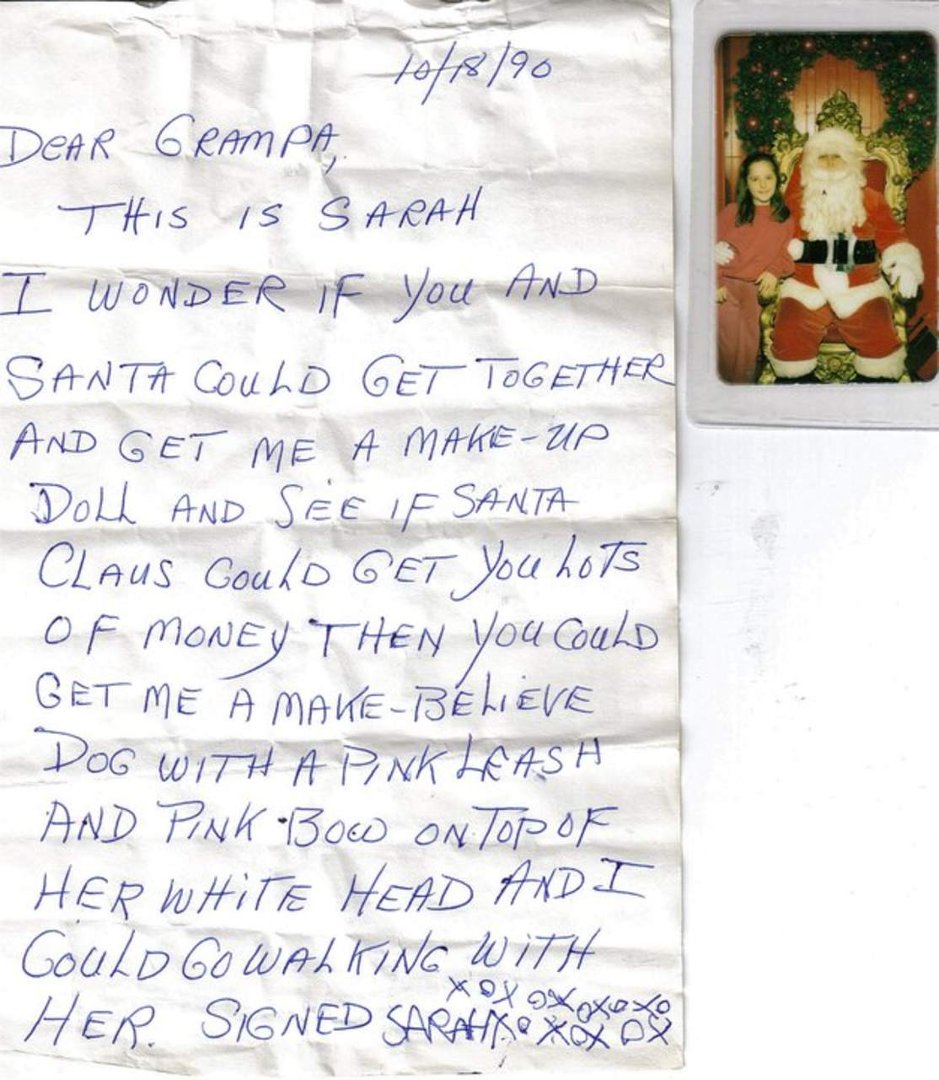 10/18/90
DEAR GRAMPA,
THIS IS SARAH
I WONDER IF YOU AND
SANTA COULD GET TOGETHER
AND GET ME A MAKE-UP
DOLL AND SEE IF SANTA
CLAUS COULD GET YOU LOTS
OF MONEY THEN YOU COULD
GET ME A MAKE-BELIEVE
DOG WITH A PINK LEASH
AND PINK BOW ON TOP OF
HER WHITE HEAD AND I
COULD GO WALKING WITH
HER. SIGNED SARAH